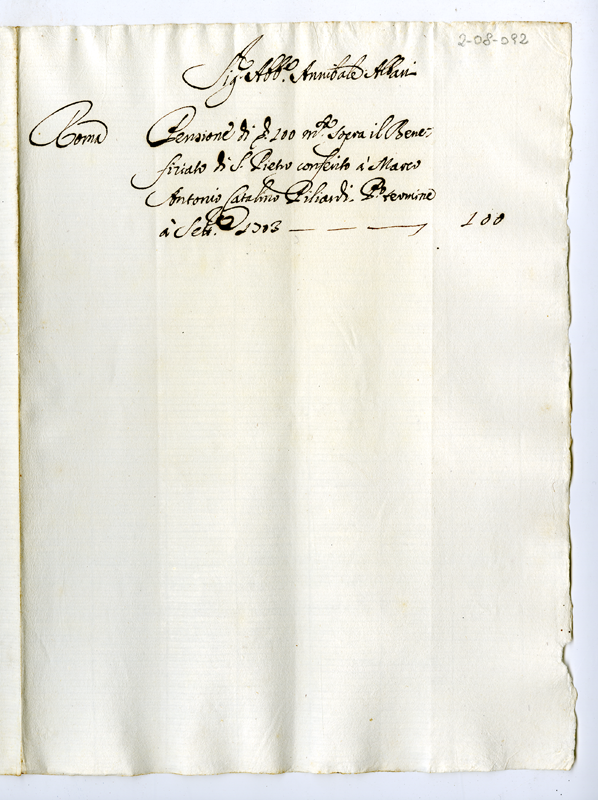 2-08-092
Sig.r Abb.e Annibale Albani
Roma Pensione di ∇ 100 m.ta sopra il Bene-
ficiato di S. Pietro conferito à Marco
Antonio Catalino Piliardi. P.o termine
à Sett.e 1703 — — — 100